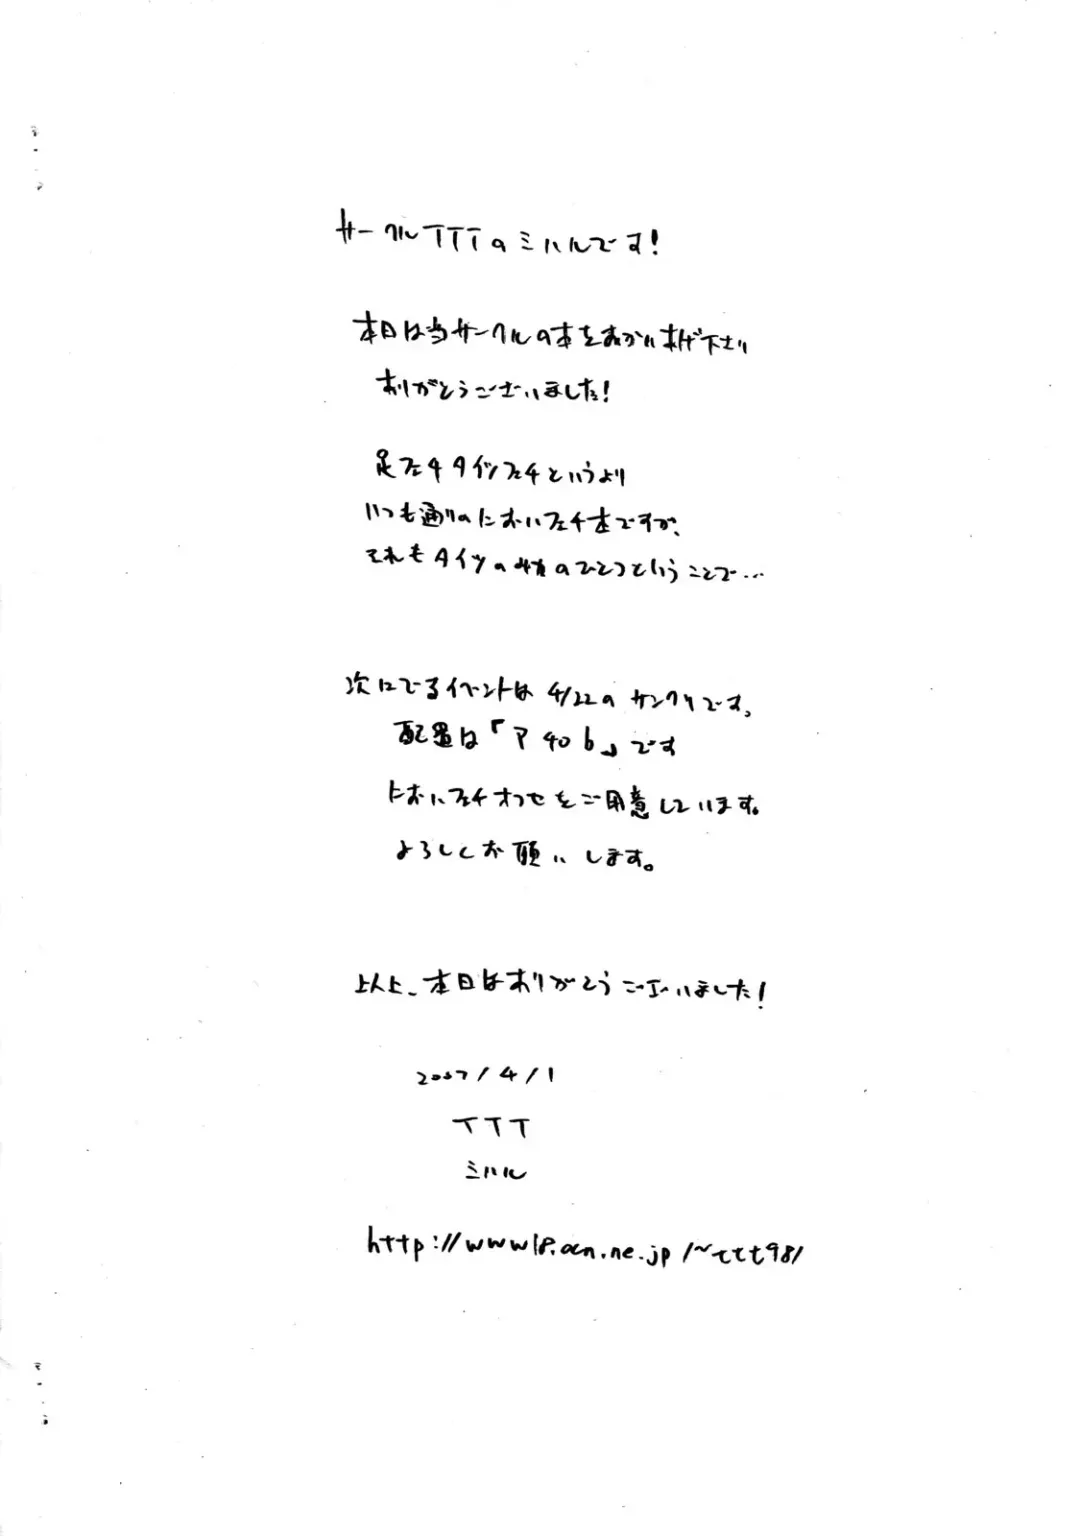 サークルTTTのミハルです!
本日は当サークルの本をおかい上げ下さり
ありがとうございました!
足フェチタイツフェチというより
いつも通りのにおいフェチ本ですが、
それもタイツの味のひとつということで…
次にでるイベントは 4/22の サンクリです。
配置は「ア40b」です
においフェチオフセをご用意しています。
よろしくお願いします。
以上、本日はありがとうございました!
2007/4/1
TTT
ミハル
http://www18.ocn.ne.jp/~ttt981